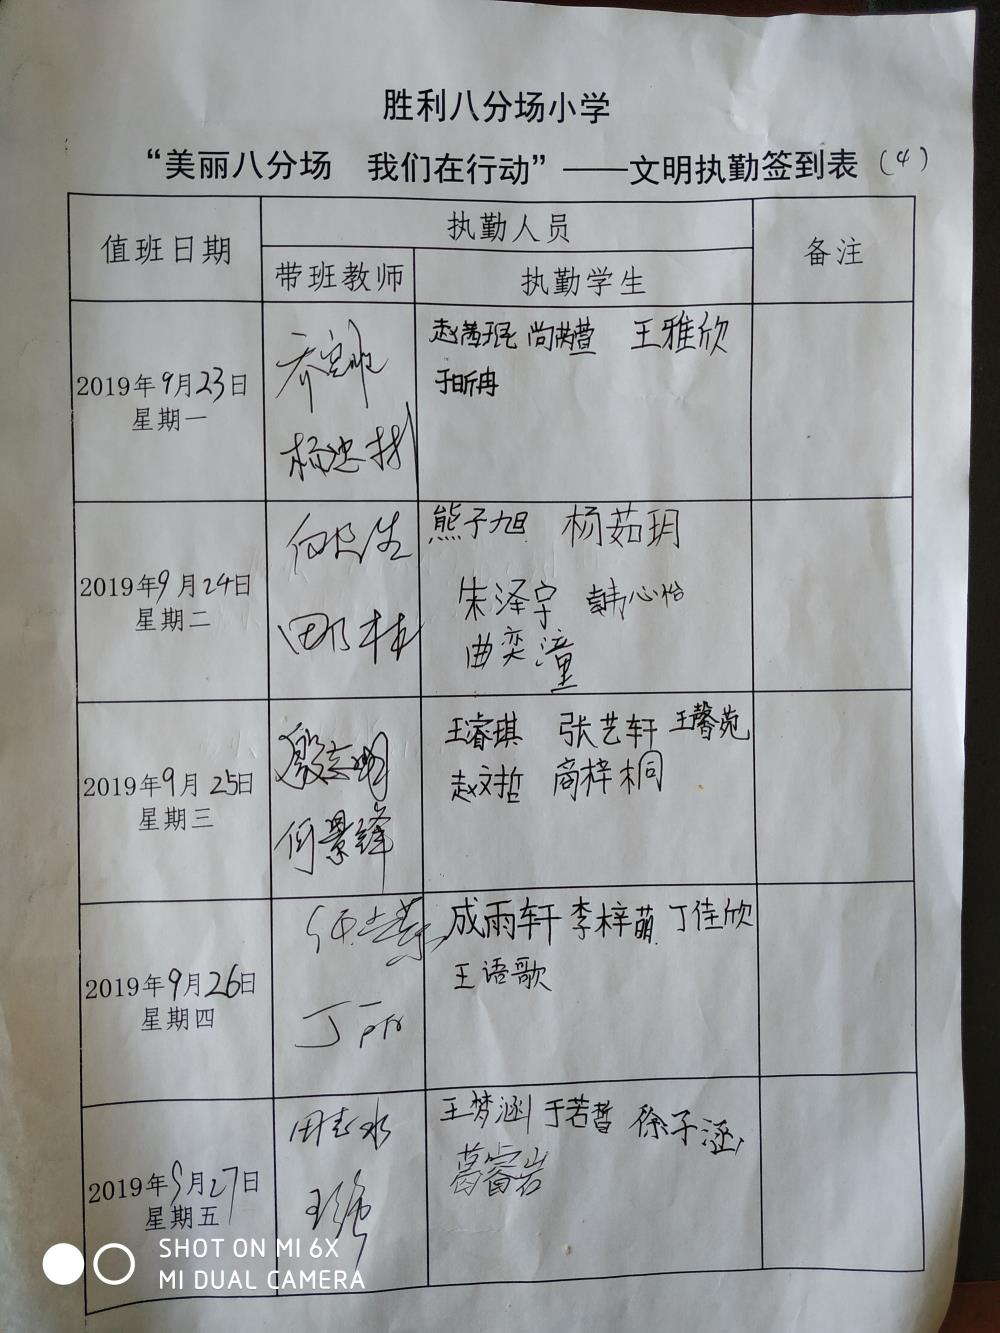 胜利八分场小学
“美丽八分场 我们在行动”——文明执勤签到表（4）
值班日期
执勤人员
备注
带班教师
执勤学生
2019年9月23日
星期一
赵 王雅欣
于昕冉
2019年9月24日
星期二
田 林
熊子旭 杨茹玥
朱泽宇 韩心怡
曲奕潼
2019年9月25日
星期三
殷志明
何景锋
王睿琪 张艺轩 王馨苑
赵文哲 高梓桐
2019年9月26日
星期四
丁
成雨轩 李梓萌 丁佳欣
王语歌
2019年9月27日
星期五
田志水
王强
王梦涵 于若哲 徐子涵
葛睿岩
SHOT ON MI 6X
MI DUAL CAMERA